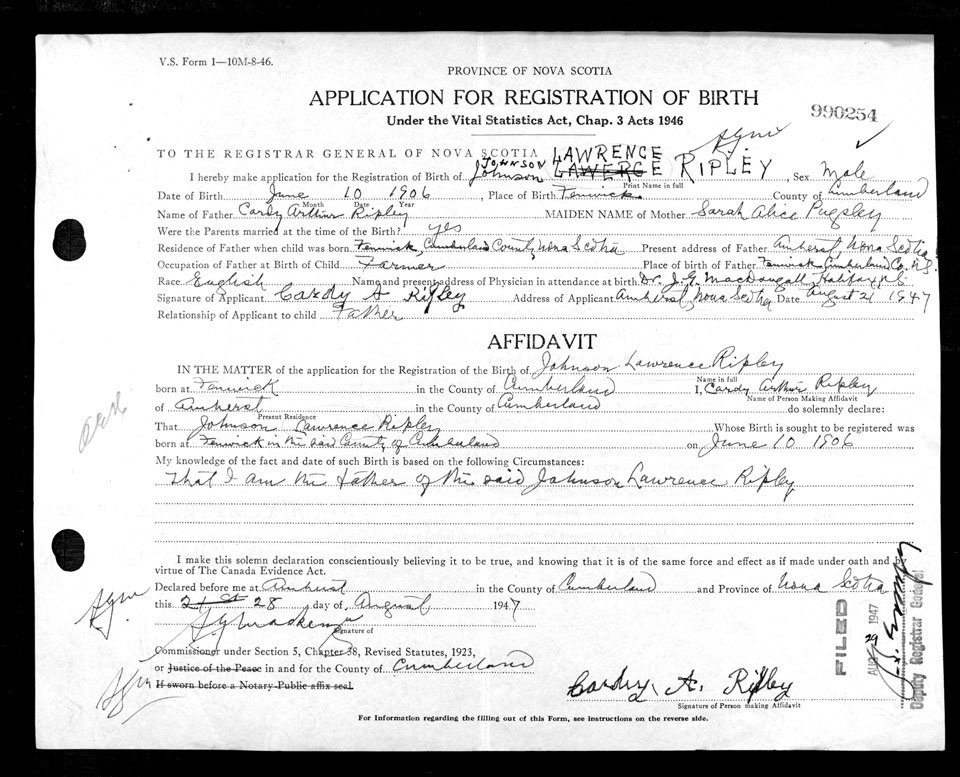 V.S. Form 1—10M-8-46.
PROVINCE OF NOVA SCOTIA
APPLICATION FOR REGISTRATION OF BIRTH
990254
Under the Vital Statistics Act, Chap. 3 Acts 1946
TO THE REGISTRAR GENERAL OF NOVA SCOTIA
JOHNSON LAWRENCE
I hereby make application for the Registration of Birth of Johnson LAWERCE RIPLEY, Sex Male
Print Name in full
Date of Birth June 10 1906, Place of Birth Fenwick County of Cumberland
Month Date Year
Name of Father Cardy Arthur Ripley MAIDEN NAME of Mother Sarah Alice Pugsley
Were the Parents married at the time of the Birth? yes
Residence of Father when child was born Fenwick, Cumberland County, Nova Scotia Present address of Father Amherst, Nova Scotia
Occupation of Father at Birth of Child Farmer Place of birth of Father Fenwick Cumberland Co. N.S.
Race English Name and present address of Physician in attendance at birth Dr. J.G. MacDougall, Halifax, N.S.
Signature of Applicant Cardy A Ripley Address of Applicant Amherst, Nova Scotia Date August 21 1947
Relationship of Applicant to child Father
AFFIDAVIT
IN THE MATTER of the application for the Registration of the Birth of Johnson Lawrence Ripley
Name in full
born at Fenwick in the County of Cumberland I, Cardy Arthur Ripley
Name of Person Making Affidavit
of Amherst in the County of Cumberland do solemnly declare:
Present Residence
That Johnson Lawrence Ripley Whose Birth is sought to be registered was
born at Fenwick in the said County of Cumberland on June 10 1906
My knowledge of the fact and date of such Birth is based on the following Circumstances:
That I am the father of the said Johnson Lawrence Ripley
I make this solemn declaration conscientiously believing it to be true, and knowing that it is of the same force and effect as if made under oath and by
virtue of The Canada Evidence Act.
Declared before me at Amherst in the County of Cumberland and Province of Nova Scotia
this 21st 28 day of August 1947
Signature of
Commissioner under Section 5, Chapter 38, Revised Statutes, 1923,
or Justice of the Peace in and for the County of Cumberland
If sworn before a Notary Public affix seal.
Cardy A. Ripley
Signature of Person making Affidavit
For Information regarding the filling out of this Form, see instructions on the reverse side.
FILED
AUG 29 1947
Deputy Registrar General